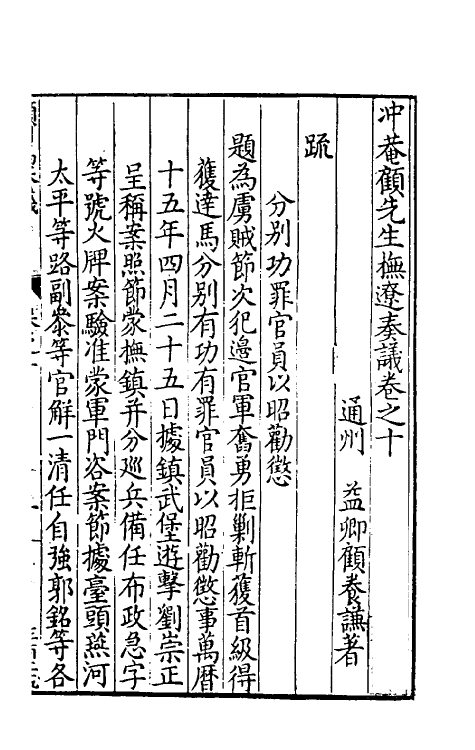 冲菴顧先生撫遼奏議卷之十
通州　益卿顧養謙著
疏
分別功罪官員以昭勸懲
題為虜賊節次犯邊官軍奮勇拒剿斬獲首級得
獲達馬分別有功有罪官員以昭勸懲事萬曆
十五年四月二十五日據鎮武堡遊擊劉崇正
呈稱案照節蒙撫鎮并分巡兵備任布政急字
等號火牌案驗准蒙軍門咨案節據臺頭燕河
太平等路副叅等官解一清任自強郭銘等各